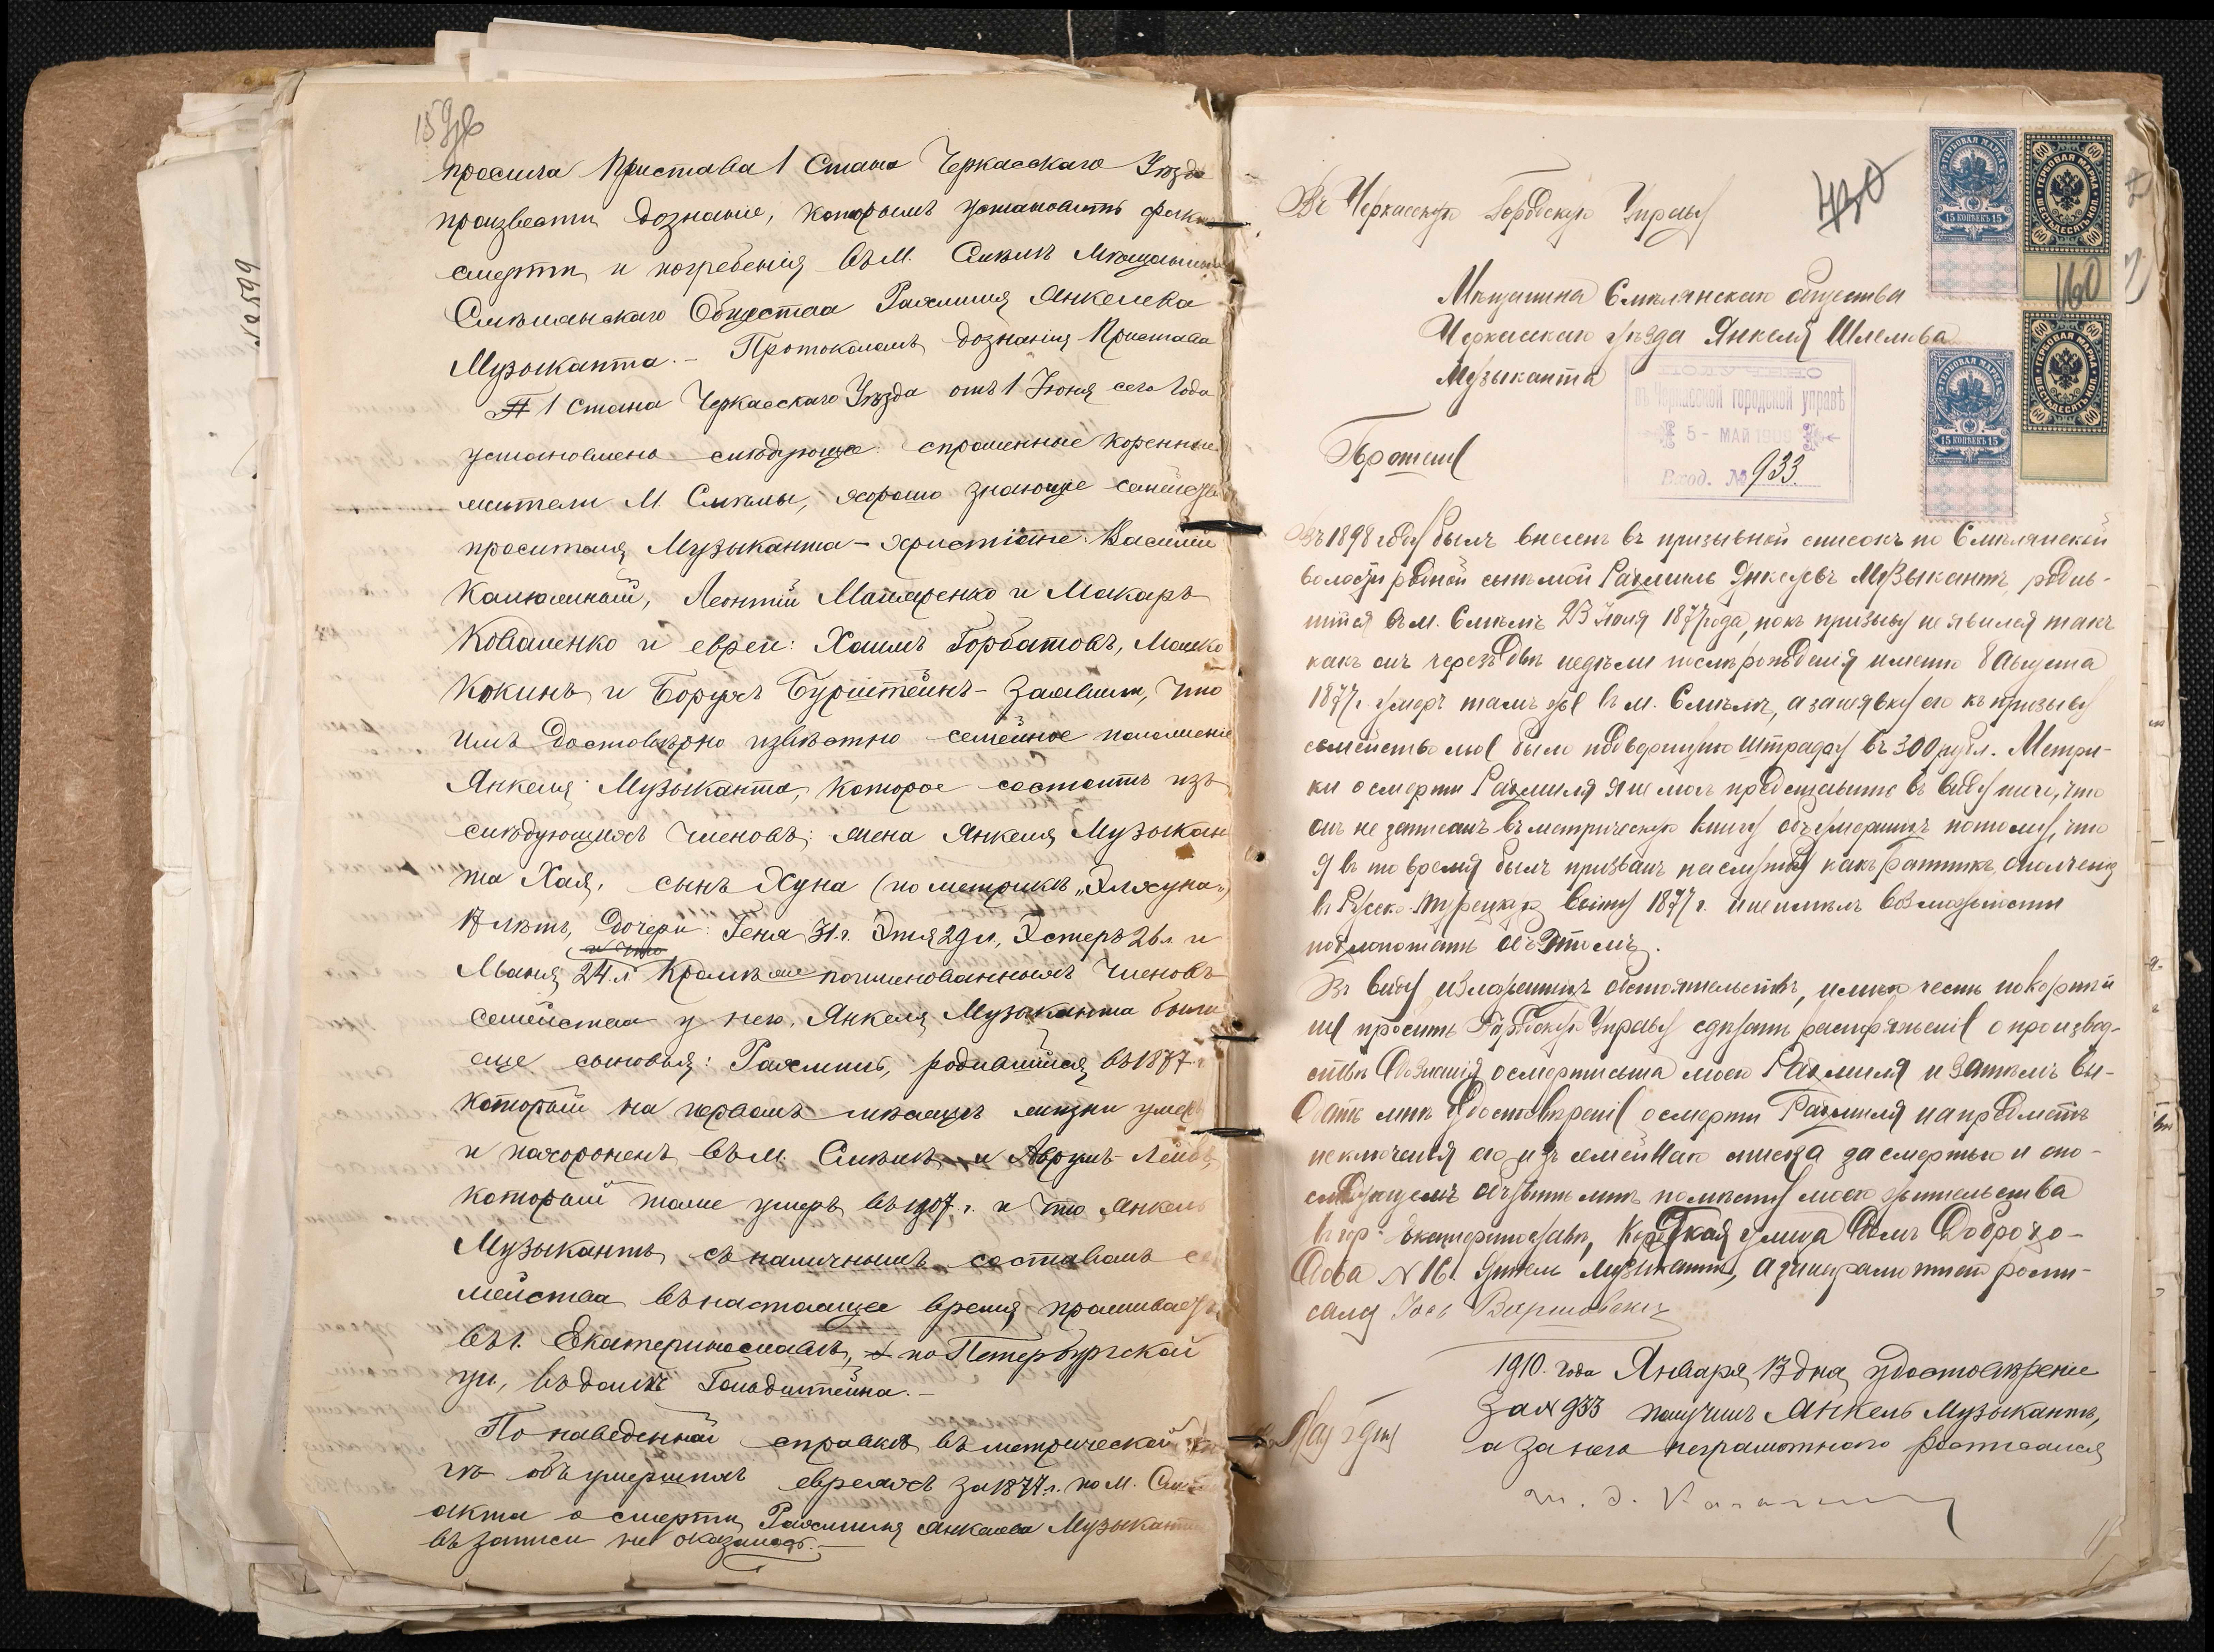 159об
просила Пристава 1 Стана Черкасскаго Уѣзда
произвести дознаніе, которымъ установить фактъ
смерти и погребенія въ М. Смѣлѣ Мѣщанина
Смѣлянскаго Общества Рахмиля Янкелева
Музыканта. – Протоколомъ дознанія Пристава
1 Стана Черкасскаго Уѣзда отъ 1 Іюня сего года
установлено слѣдующее: спрошенные коренные
жители М. Смѣлы, хорошо знающіе семейство
просителя Музыканта – христіане: Василій
Леонтій и Макаръ
Коваленко и евреи: Хаимъ Горбатовъ, Мошко
Кокинъ и Борухъ Бурштейнъ – заявили, что
имъ достовѣрно извѣстно семейное положеніе
Янкеля Музыканта, которое состоитъ изъ
слѣдующихъ членовъ: жена Янкеля Музыкан
та Хая, сынъ Хуна (по метрикѣ „Элхуна")
17 лѣтъ, дочери: Геня 31 г. Этя 29 л., Эстеръ 26 л. и
и что
Маня 24 л. Кромѣ же поименованныхъ членовъ
семейства у него, Янкеля Музыканта были
еще сыновья: Рахмиль, родившійся въ 1877 г.
который на первомъ мѣсяцѣ жизни умеръ
и похороненъ въ М. Смѣлѣ и Аврумъ-Лейбъ,
который тоже умеръ въ 1907 г. и что Янкель
Музыкантъ съ наличнымъ составомъ се
мейства въ настоящее время проживаетъ
въ г. Екатеринославѣ, по Петербургской
ул., въ домѣ Гольдштейна. –
По наведенной справкѣ въ метрической кни
гѣ объ умершихъ евреяхъ за 1877 г. по М. Смѣлѣ
акта о смерти Рахмиля Янкелева Музыканта
въ записи не оказалось. –
№ 599
Въ Черкасскую Городскую Управу
430
160
ГЕРБОВАЯ МАРКА
15 КОПѢЕКЪ 15
ГЕРБОВАЯ МАРКА
ШЕСТЬДЕСЯТЪ КОП.
60
ГЕРБОВАЯ МАРКА
15 КОПѢЕКЪ 15
ГЕРБОВАЯ МАРКА
ШЕСТЬДЕСЯТЪ КОП.
60
Мѣщанина Смѣлянскаго общества
Черкасскаго уѣзда Янкеля Шлемова
Музыканта
въ Черкасской городской управѣ
5 - МАЯ 1909
Вход. № 933.
Прошеніе
Въ 1898 году былъ внесенъ въ призывной списокъ по Смѣлянской
волости родной сынъ мой Рахмиль Янкелевъ Музыкантъ, родив-
шійся въ м. Смѣлѣ 23 Іюля 1877 года, но къ призыву не явился такъ
какъ онъ черезъ двѣ недѣли послѣ рожденія именно 8 Августа
1877 г. умеръ тамъ же въ м. Смѣлѣ, а за неявку его къ призыву
семейство мое было подвергнуто штрафу въ 300 рубл. Метри-
ки о смерти Рахмиля я не могъ представить въ виду того, что
онъ не записанъ въ метрическую книгу объ умершихъ потому, что
я въ то время былъ призванъ на службу какъ ратникъ ополченія
въ Русско-Турецкую войну 1877 г. и не имѣлъ возможности
похлопотать объ этомъ.
Въ виду изложенныхъ обстоятельствъ, имѣю честь покорнѣй
ше просить Городскую Управу сдѣлать распоряженіе о производ-
ствѣ дознанія о смерти сына моего Рахмиля и затѣмъ вы-
дать мнѣ удостовѣреніе о смерти Рахмиля на предметъ
исключенія его изъ семейнаго списка за смертью и о по-
слѣдующемъ объявить мнѣ по мѣсту моего жительства
въ гор. Екатеринославѣ, улица домъ
№ 16. Янкель Музыкантъ, а за неграмотнаго роспи-
сался
1910. года Января 13 дня, удостовѣреніе
за № 933 получилъ Янкель Музыкантъ,
а за него неграмотнаго росписался